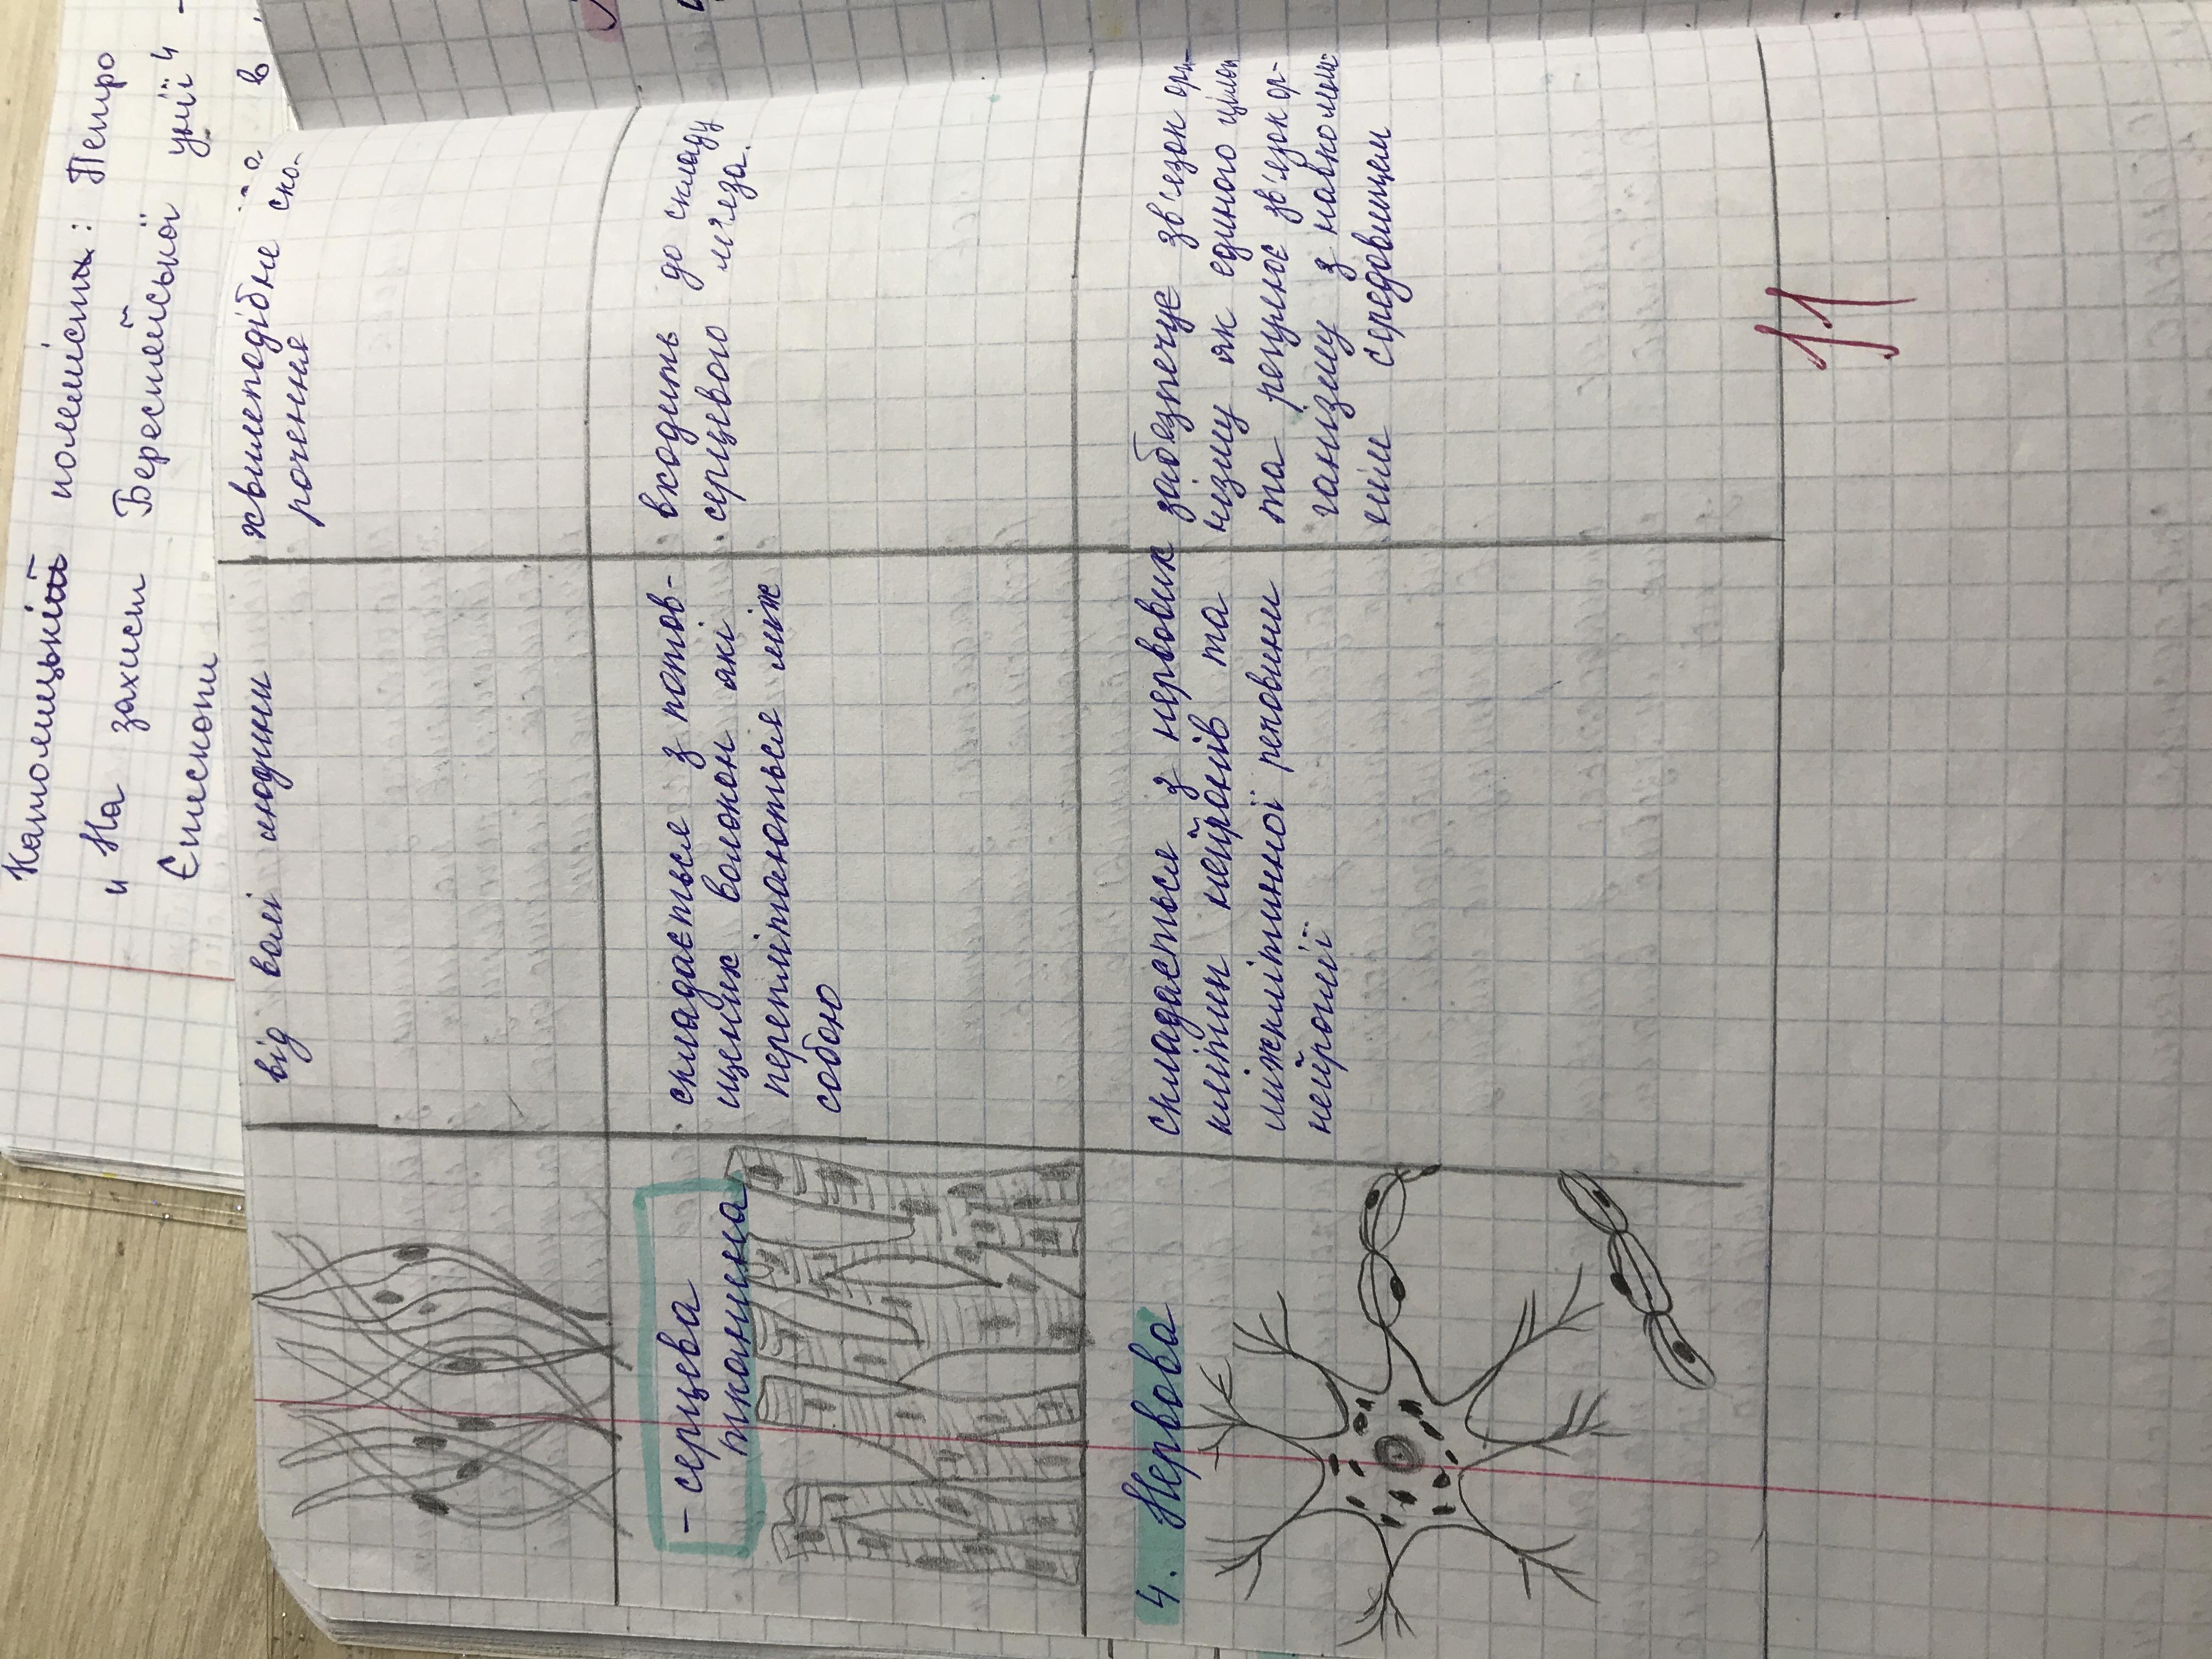 Католицький полеміст: Петро
и На захист Берестейської унії 4
Єпископи
від волі людини
хвилеподібне ско-
рочення
- серцева
тканина
складається з потов-
щених волокон які
переплітаються між
собою
входить до складу
серцевого м'яза.
4. Нервова
складається з нервових
клітин нейронів та
міжклітинної речовини
нейроглії
забезпечує зв'язок орга-
нізму як єдиного цілого
та регулює зв'язок ор-
ганізму з навколиш-
нім середовищем
11